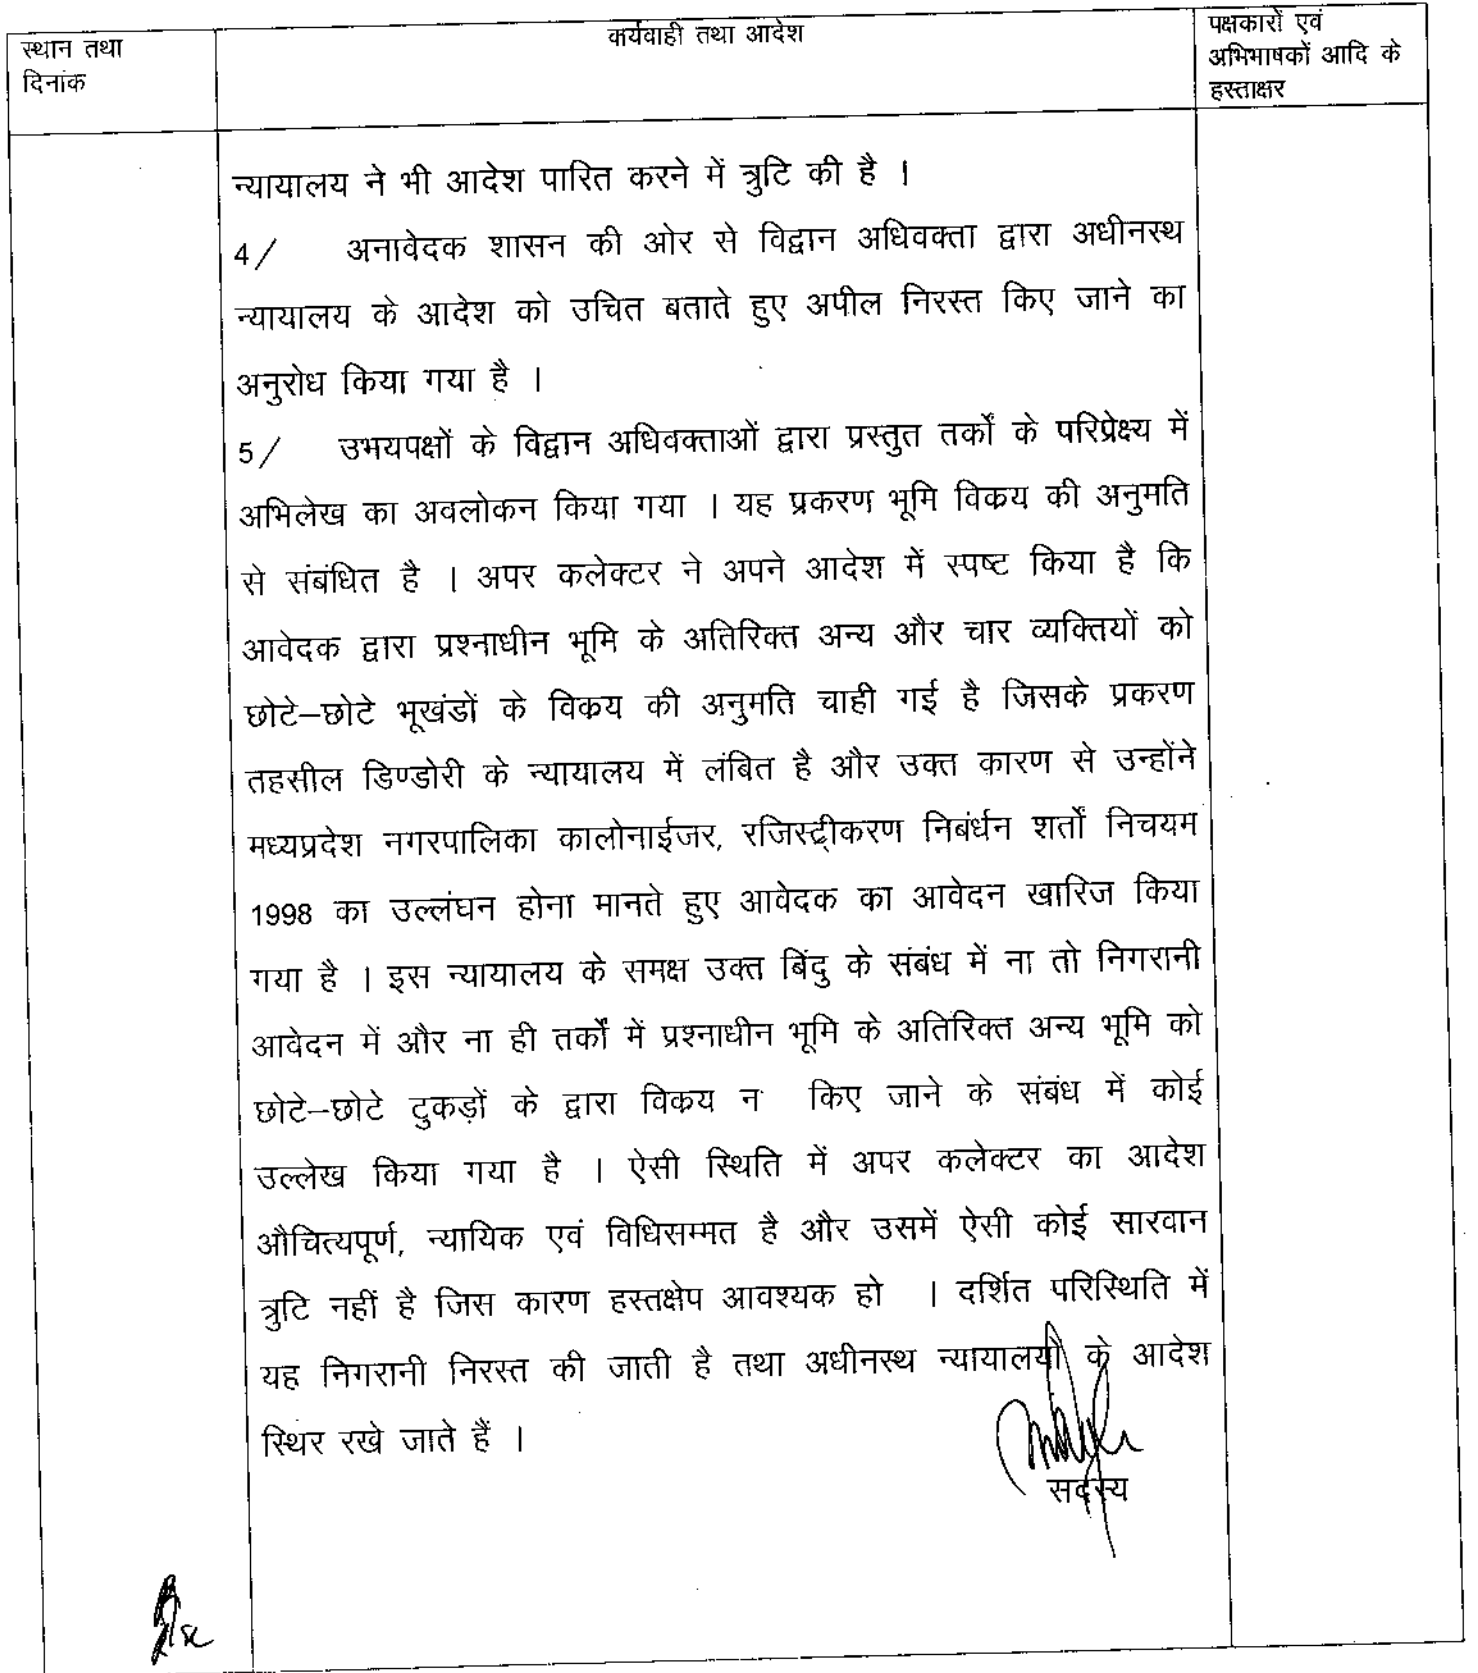 स्थान तथा
दिनांक
कार्यवाही तथा आदेश
पक्षकारों एवं
अभिभाषकों आदि के
हस्ताक्षर
न्यायालय ने भी आदेश पारित करने में त्रुटि की है ।
4/ अनावेदक शासन की ओर से विद्वान अधिवक्ता द्वारा अधीनस्थ
न्यायालय के आदेश को उचित बताते हुए अपील निरस्त किए जाने का
अनुरोध किया गया है ।
5/ उभयपक्षों के विद्वान अधिवक्ताओं द्वारा प्रस्तुत तर्कों के परिप्रेक्ष्य में
अभिलेख का अवलोकन किया गया । यह प्रकरण भूमि विकय की अनुमति
से संबंधित है । अपर कलेक्टर ने अपने आदेश में स्पष्ट किया है कि
आवेदक द्वारा प्रश्नाधीन भूमि के अतिरिक्त अन्य और चार व्यक्तियों को
छोटे–छोटे भूखंडों के विकय की अनुमति चाही गई है जिसके प्रकरण
तहसील डिण्डोरी के न्यायालय में लंबित है और उक्त कारण से उन्होंने
मध्यप्रदेश नगरपालिका कालोनाईजर, रजिस्ट्रीकरण निबंर्धन शर्तों निचयम
1998 का उल्लंघन होना मानते हुए आवेदक का आवेदन खारिज किया
गया है । इस न्यायालय के समक्ष उक्त बिंदु के संबंध में ना तो निगरानी
आवेदन में और ना ही तर्कों में प्रश्नाधीन भूमि के अतिरिक्त अन्य भूमि को
छोटे–छोटे टुकड़ों के द्वारा विकय न किए जाने के संबंध में कोई
उल्लेख किया गया है । ऐसी स्थिति में अपर कलेक्टर का आदेश
औचित्यपूर्ण, न्यायिक एवं विधिसम्मत है और उसमें ऐसी कोई सारवान
त्रुटि नहीं है जिस कारण हस्तक्षेप आवश्यक हो । दर्शित परिस्थिति में
यह निगरानी निरस्त की जाती है तथा अधीनस्थ न्यायालयों के आदेश
स्थिर रखे जाते हैं ।
सदस्य